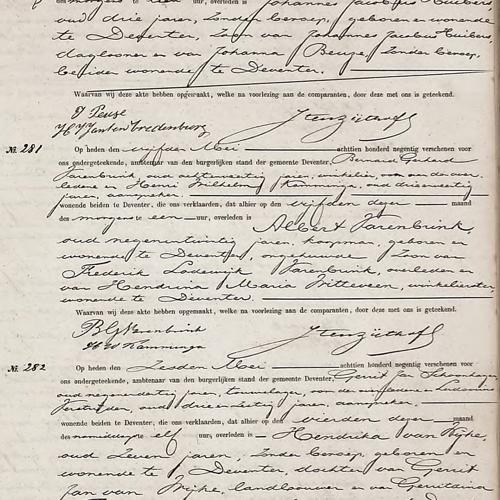 des morgens te uur, overleden is Johannes Jacobus Huibers
oud drie jaren, zonder beroep, geboren en wonende
te Deventer, zoon van Johannes Jacobus Huibers
daglooner en van Johanna Beuze, zonder beroep,
beiden wonende te Deventer.
Waarvan wij deze akte hebben opgemaakt, welke na voorlezing aan de comparanten, door deze met ons is geteekend.
No. 281
Op heden den vijfden Mei achttien honderd negentig verschenen voor
ons ondergeteekende, ambtenaar van den burgerlijken stand der gemeente Deventer, Bernard Gerhard
Varenbrink, oud achtenveertig jaren, winkelier, oom van den over-
ledene en Henri Wilhelm Kamminga, oud drieenveertig
jaren, aanspreker
wonende beiden te Deventer, die ons verklaarden, dat alhier op den vijfden dezer maand
des morgens te een uur, overleden is
Albert Varenbrink,
oud negenentwintig jaren, koopman, geboren en
wonende te Deventer, ongehuwde zoon van
Frederik Lodewijk Varenbrink, overleden en
van Hendrina Maria Witteveen, winkelierster,
wonende te Deventer.
Waarvan wij deze akte hebben opgemaakt, welke na voorlezing aan de comparanten, door deze met ons is geteekend.
BG Varenbrink
HW Kamminga
No. 282
Op heden den zesden Mei achttien honderd negentig verschenen voor
ons ondergeteekende, ambtenaar van den burgerlijken stand der gemeente Deventer, Gerrit Jan
oud negenendertig jaren, touwslager, en
oud drieenzestig jaren, aanspreker
wonende beiden te Deventer, die ons verklaarden, dat alhier op den vierden dezer maand
des namiddags te elf uur, overleden is Hendrika van Wijhe,
oud zeven jaren, zonder beroep, geboren en
wonende te Deventer, dochter van Gerrit
Jan van Wijhe, landbouwer en van Gerritdina